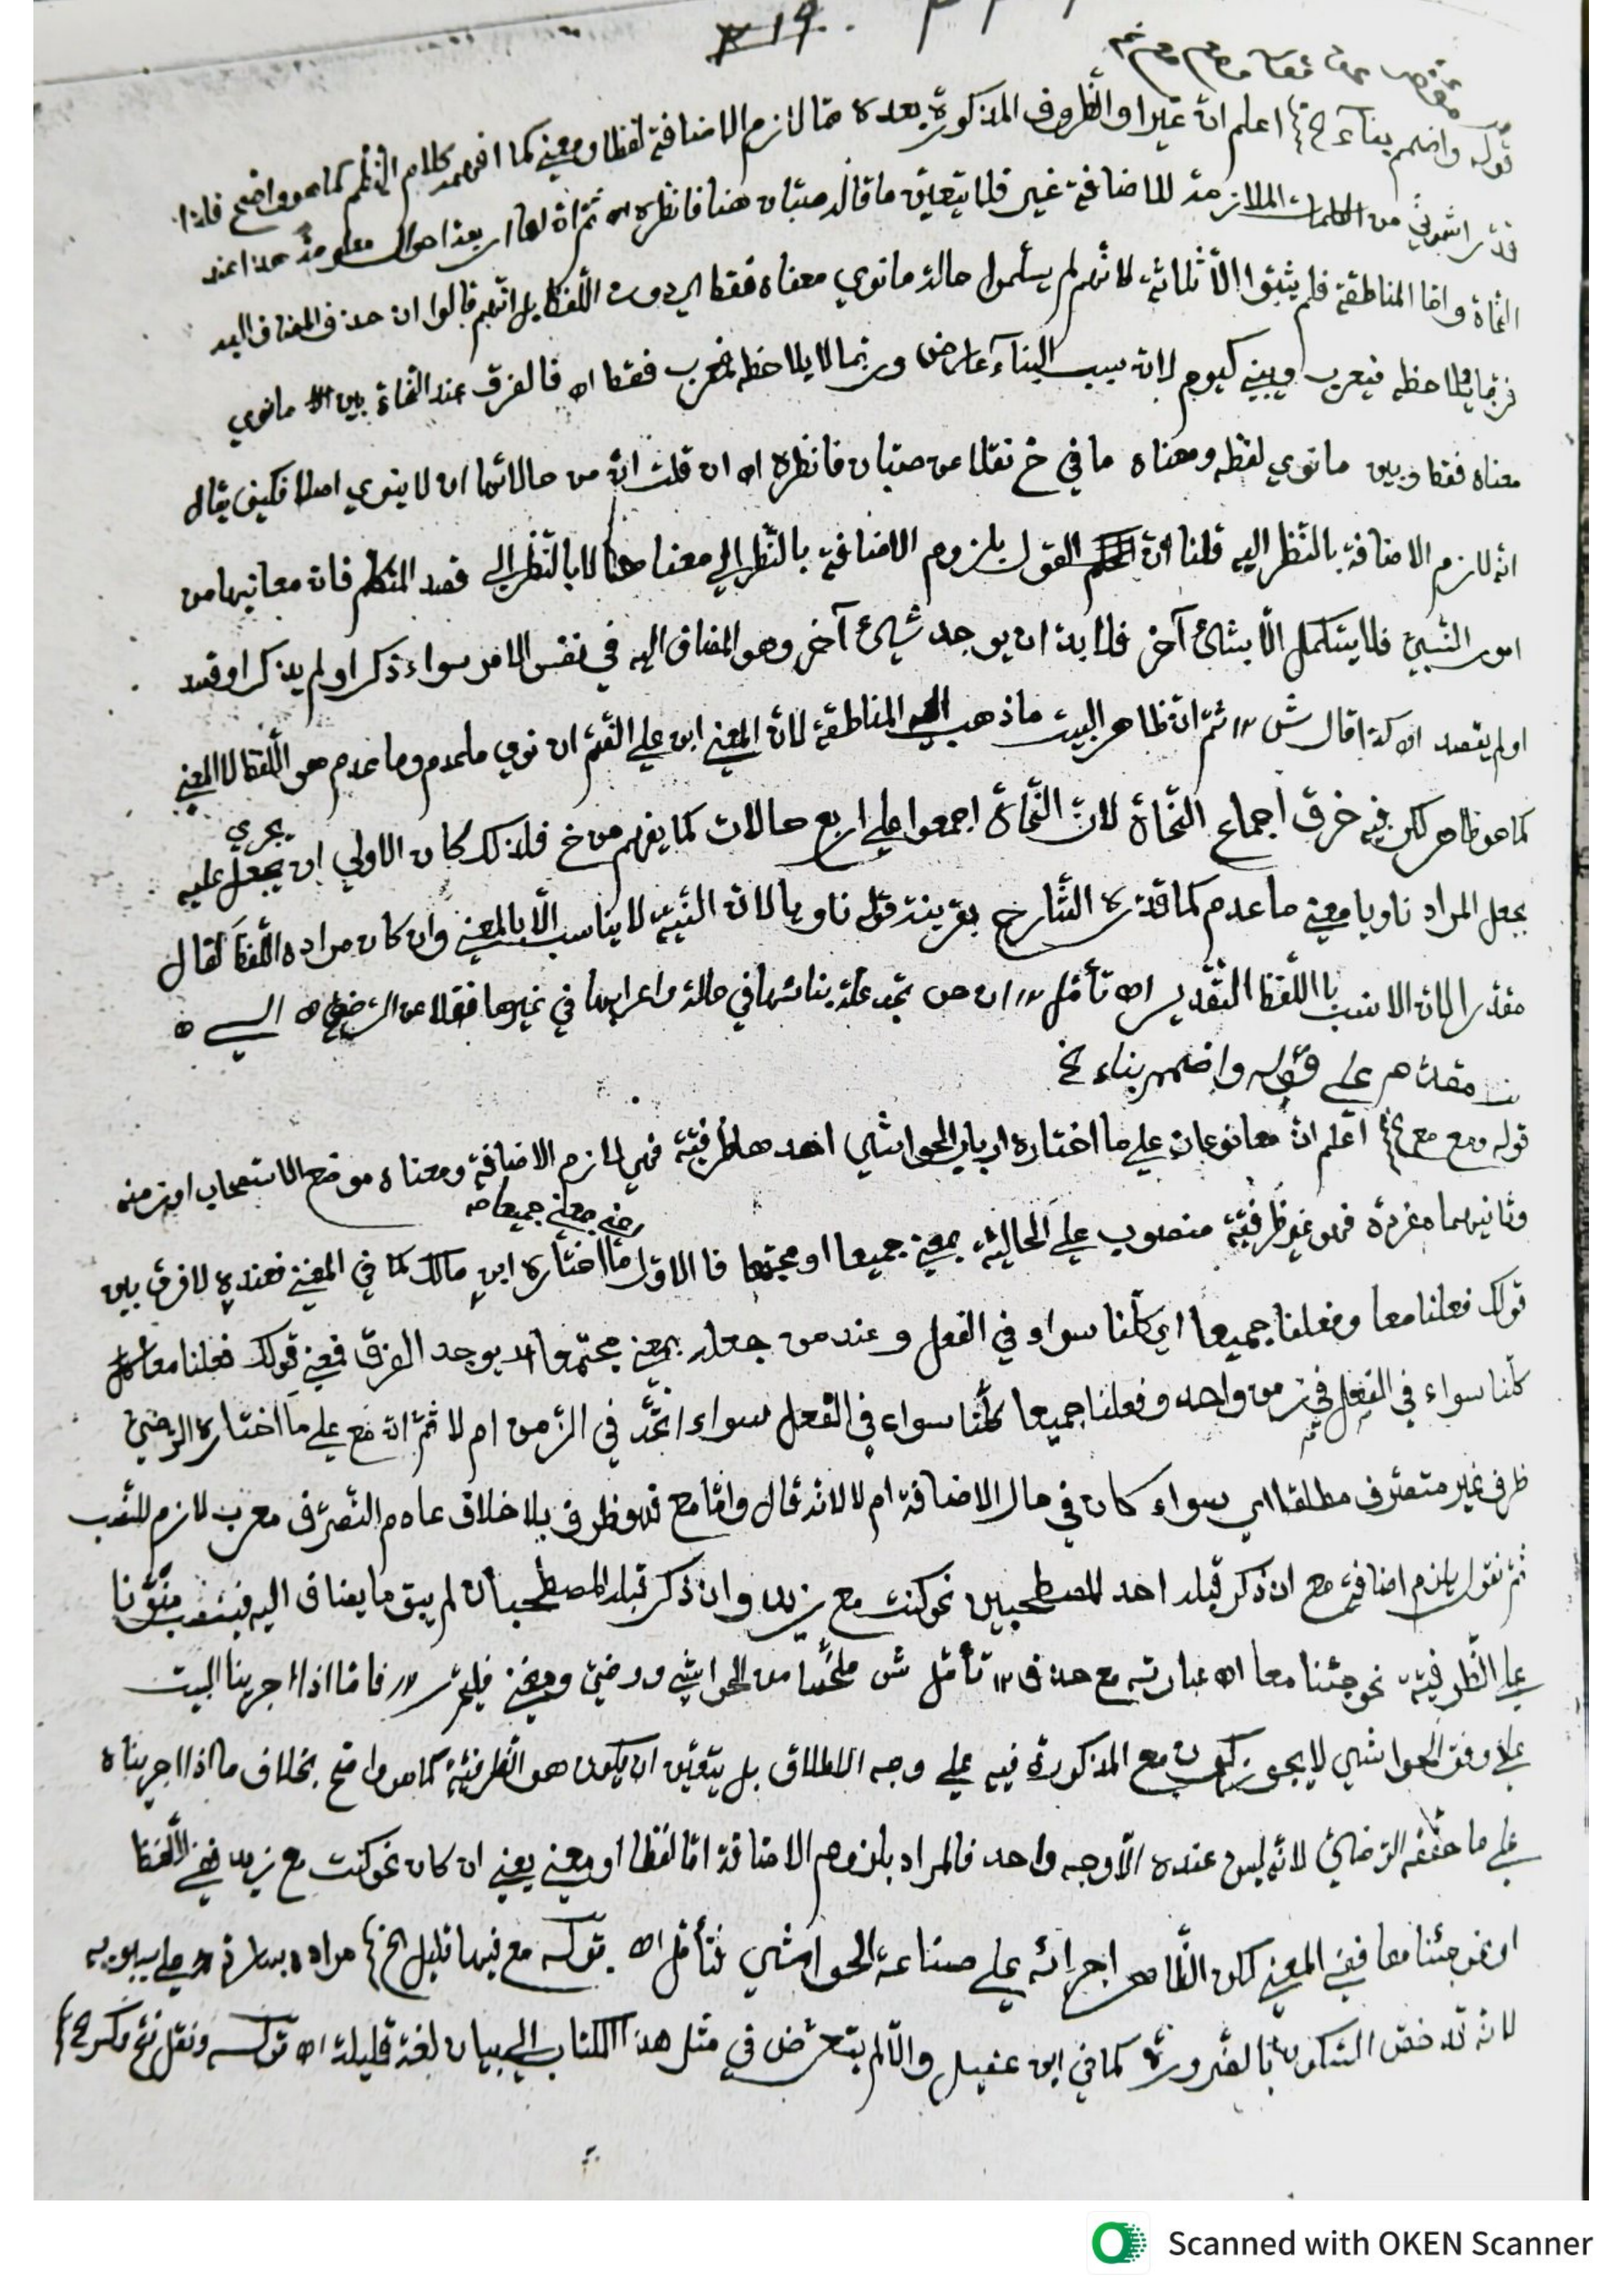 قوله واضمم بناء الخ} اعلم ان غيرا والظروف المذكورة بعده مما لازم الاضافة لفظا ومعنى كما افهمه كلام الناظم كما هو واضح فلذا
قدر اشموني من الكلمات الملازمة للاضافة غير فلا يتعين ما قال صبّان هنا فانظره اه ثمّ انّ لها اربعة احوال معلومة هذا عند
النحاة وامّا المناطقة فلم يثبتوا الّا ثلاثة لانهم لم يستعملوا حالة ما نوي معناه فقط اي دون اللّفظ بل انّهم قالوا ان حذف المضاف اليه
فربّما يلاحظ فيعرب ويبنى كيوم لانّ سبب البناء عارض وربّما لا يلاحظ فمعرب فقط اه فالفرق عند النّحاة بين ما نوي
معناه فقط وبين ما نوي لفظه ومعناه ما في خ نقلا عن صبّان فانظره اه ان قلت انّ من حالاتها ان لا ينوي اصلا فكيف يقال
انّه لازم الاضافة بالنّظر اليه قلنا انّ القول بلزوم الاضافة بالنّظر الى معناها لا بالنّظر الى قصد المتكلم فانّ معانيها من
امور النّسبيّ فلا يتكمل الّا بشئ آخر فلا بدّ ان يوجد شئ آخر وهو المضاف اليه في نفس الامر سواء ذكر او لم يذكر او قصد
او لم يقصد اه كذا قال ش ١٢ ثمّ انّ ظاهر البيت ما ذهب اليه المناطقة لانّ المعنى ابن على الضّمّ ان نوي ما عدم وما عدم هو اللّفظ لا المعنى
كما هو ظاهر لكن فيه خرق اجماع النّحاة لانّ النّحاة اجمعوا على اربع حالات كما يفهم من خ فلذلك كان الاولى ان يجري عليه
بجعل المراد ناويا معنى ما عدم كما قدّره الشّارح بقرينة قوله ناويا لانّ النّيّة لا يناسب الّا بالمعنى وان كان مراده اللّفظ لقال
مقدّرا لانّ الانسب باللّفظ التّقدير اه تأمّل ١٢ ان ص تجد علّة بنائها في حالة واعرابها في غيرها نقلا عن الرّضي اه
مقدّم على قوله واضمم بناء خ
قوله ومع مع الخ} اعلم انّ مع نوعان على ما اختاره ارباب الحواشي احدهما ظرفيّة فهي لازم الاضافة ومعناه موضع الاستصحاب او زمنه
وثانيهما مفردة فهو غير ظرفيّة منصوب على الحاليّة بمعنى جميعا او مجتمعا فالاوّل ما اختاره ابن مالك كما في المغني فعنده لا فرق بين
قولك فعلنا معا وفعلنا جميعا اي كلّنا سواء في الفعل وعند من جعله بمعنى مجتمعا يوجد الفرق فمعنى قولك فعلنا معا
كلّنا سواء في الفعل في زمن واحد وفعلنا جميعا كلّنا سواء في الفعل سواء اتّحد في الزّمن ام لا ثمّ انّ مع على ما اختاره الرّضيّ
ظرف غير متصرّف مطلقا اي سواء كان في حال الاضافة ام لا لانّه قال وامّا مع فهو ظرف بلا خلاف عادم التّصرّف معرب لازم للنّصب
ثمّ نقول يلزم اضافة مع ان ذكر قبله احد المصطحبين نحو كنت مع زيد وان ذكر قبله المصطحبان لم يبق ما يضاف اليه فينتصب منوّنا
على الظّرفيّة نحو جئنا معا اه عبارته مع حذف ١٢ تأمّل ش ملخّصا من الحواشي ورضيّ ومغني ١٢ فامّا اذا اجرينا البيت
على وفق الحواشي لا يجوز كون مع المذكورة فيه على وجه الاطلاق بل يتعيّن ان يكون هو الظّرفيّة كما هو واضح بخلاف ما اذا اجريناه
على ما حقّقه الرّضيّ لانّه ليس عنده الّا وجه واحد فالمراد بلزوم الاضافة امّا لفظا او معنى يعني ان كان نحو كنت مع زيد ففي اللّفظ
او نحو جئنا معا ففي المعنى لكن الظّاهر اجرائه على صناعة الحواشي فتأمّل اه قوله مع فيها قليل الخ} مراده على سيبويه
لانّه قد خصّ السّكون بالضّرورة كما في ابن عقيل والّا لم يتعرّض في مثل هذا الكتاب الى بيان لغة قليلة اه قوله ونقل فتح وكسر الخ}
Scanned with OKEN Scanner